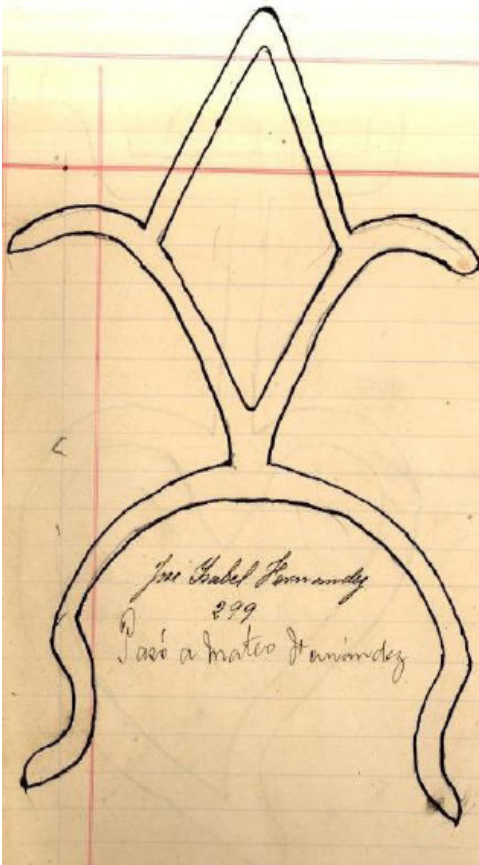 José Isabel Hernandez
299
Pasó a Mateo Hernández